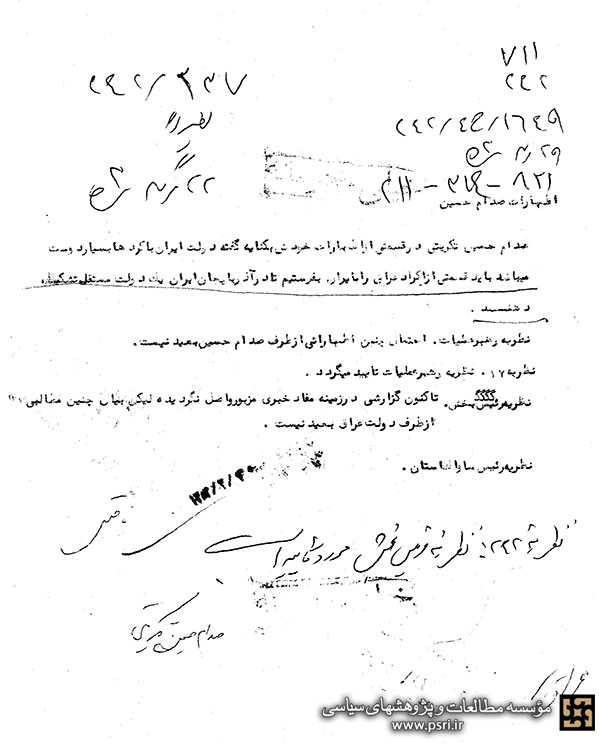 ۷۱۱
۲۴۲
۲۴۲/۳۳۷
اظهارات صدام حسین
صدام حسین تکریتی در قسمتی از اظهارات خود بکنایه گفته دولت ایران با کردها بسیار دوست
میباشد باید قسمتی از اکراد عراق را بایران بفرستیم تا در آذربایجان ایران یک دولت مستقل تشکیل
دهند .
نظریه رهبرعملیات . احتمال چنین اظهاراتی از طرف صدام حسین بعید نیست .
نظریه ۱۷ . نظریه رهبرعملیات تایید میگردد .
نظریه رئیس بخش . تاکنون گزارشی در زمینه مفاد خبری مزبور واصل نگردیده لیکن بیان چنین مطالبی
از طرف دولت عراق بعید نیست .
نظریه رئیس ساواک استان .
نظریه ۲۴۲: نظریه رئیس بخش مورد تایید است
صدام حسین تکریتی
مؤسسه مطالعات و پژوهشهای سیاسی
www.psri.ir